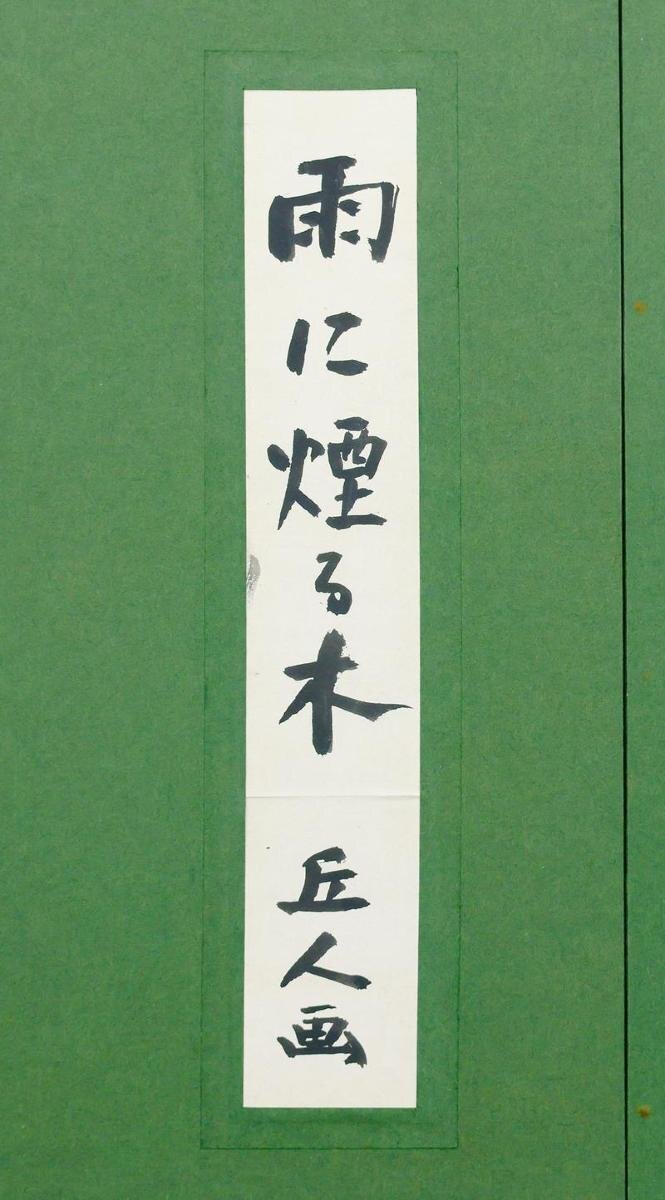 雨に煙る木 丘人画